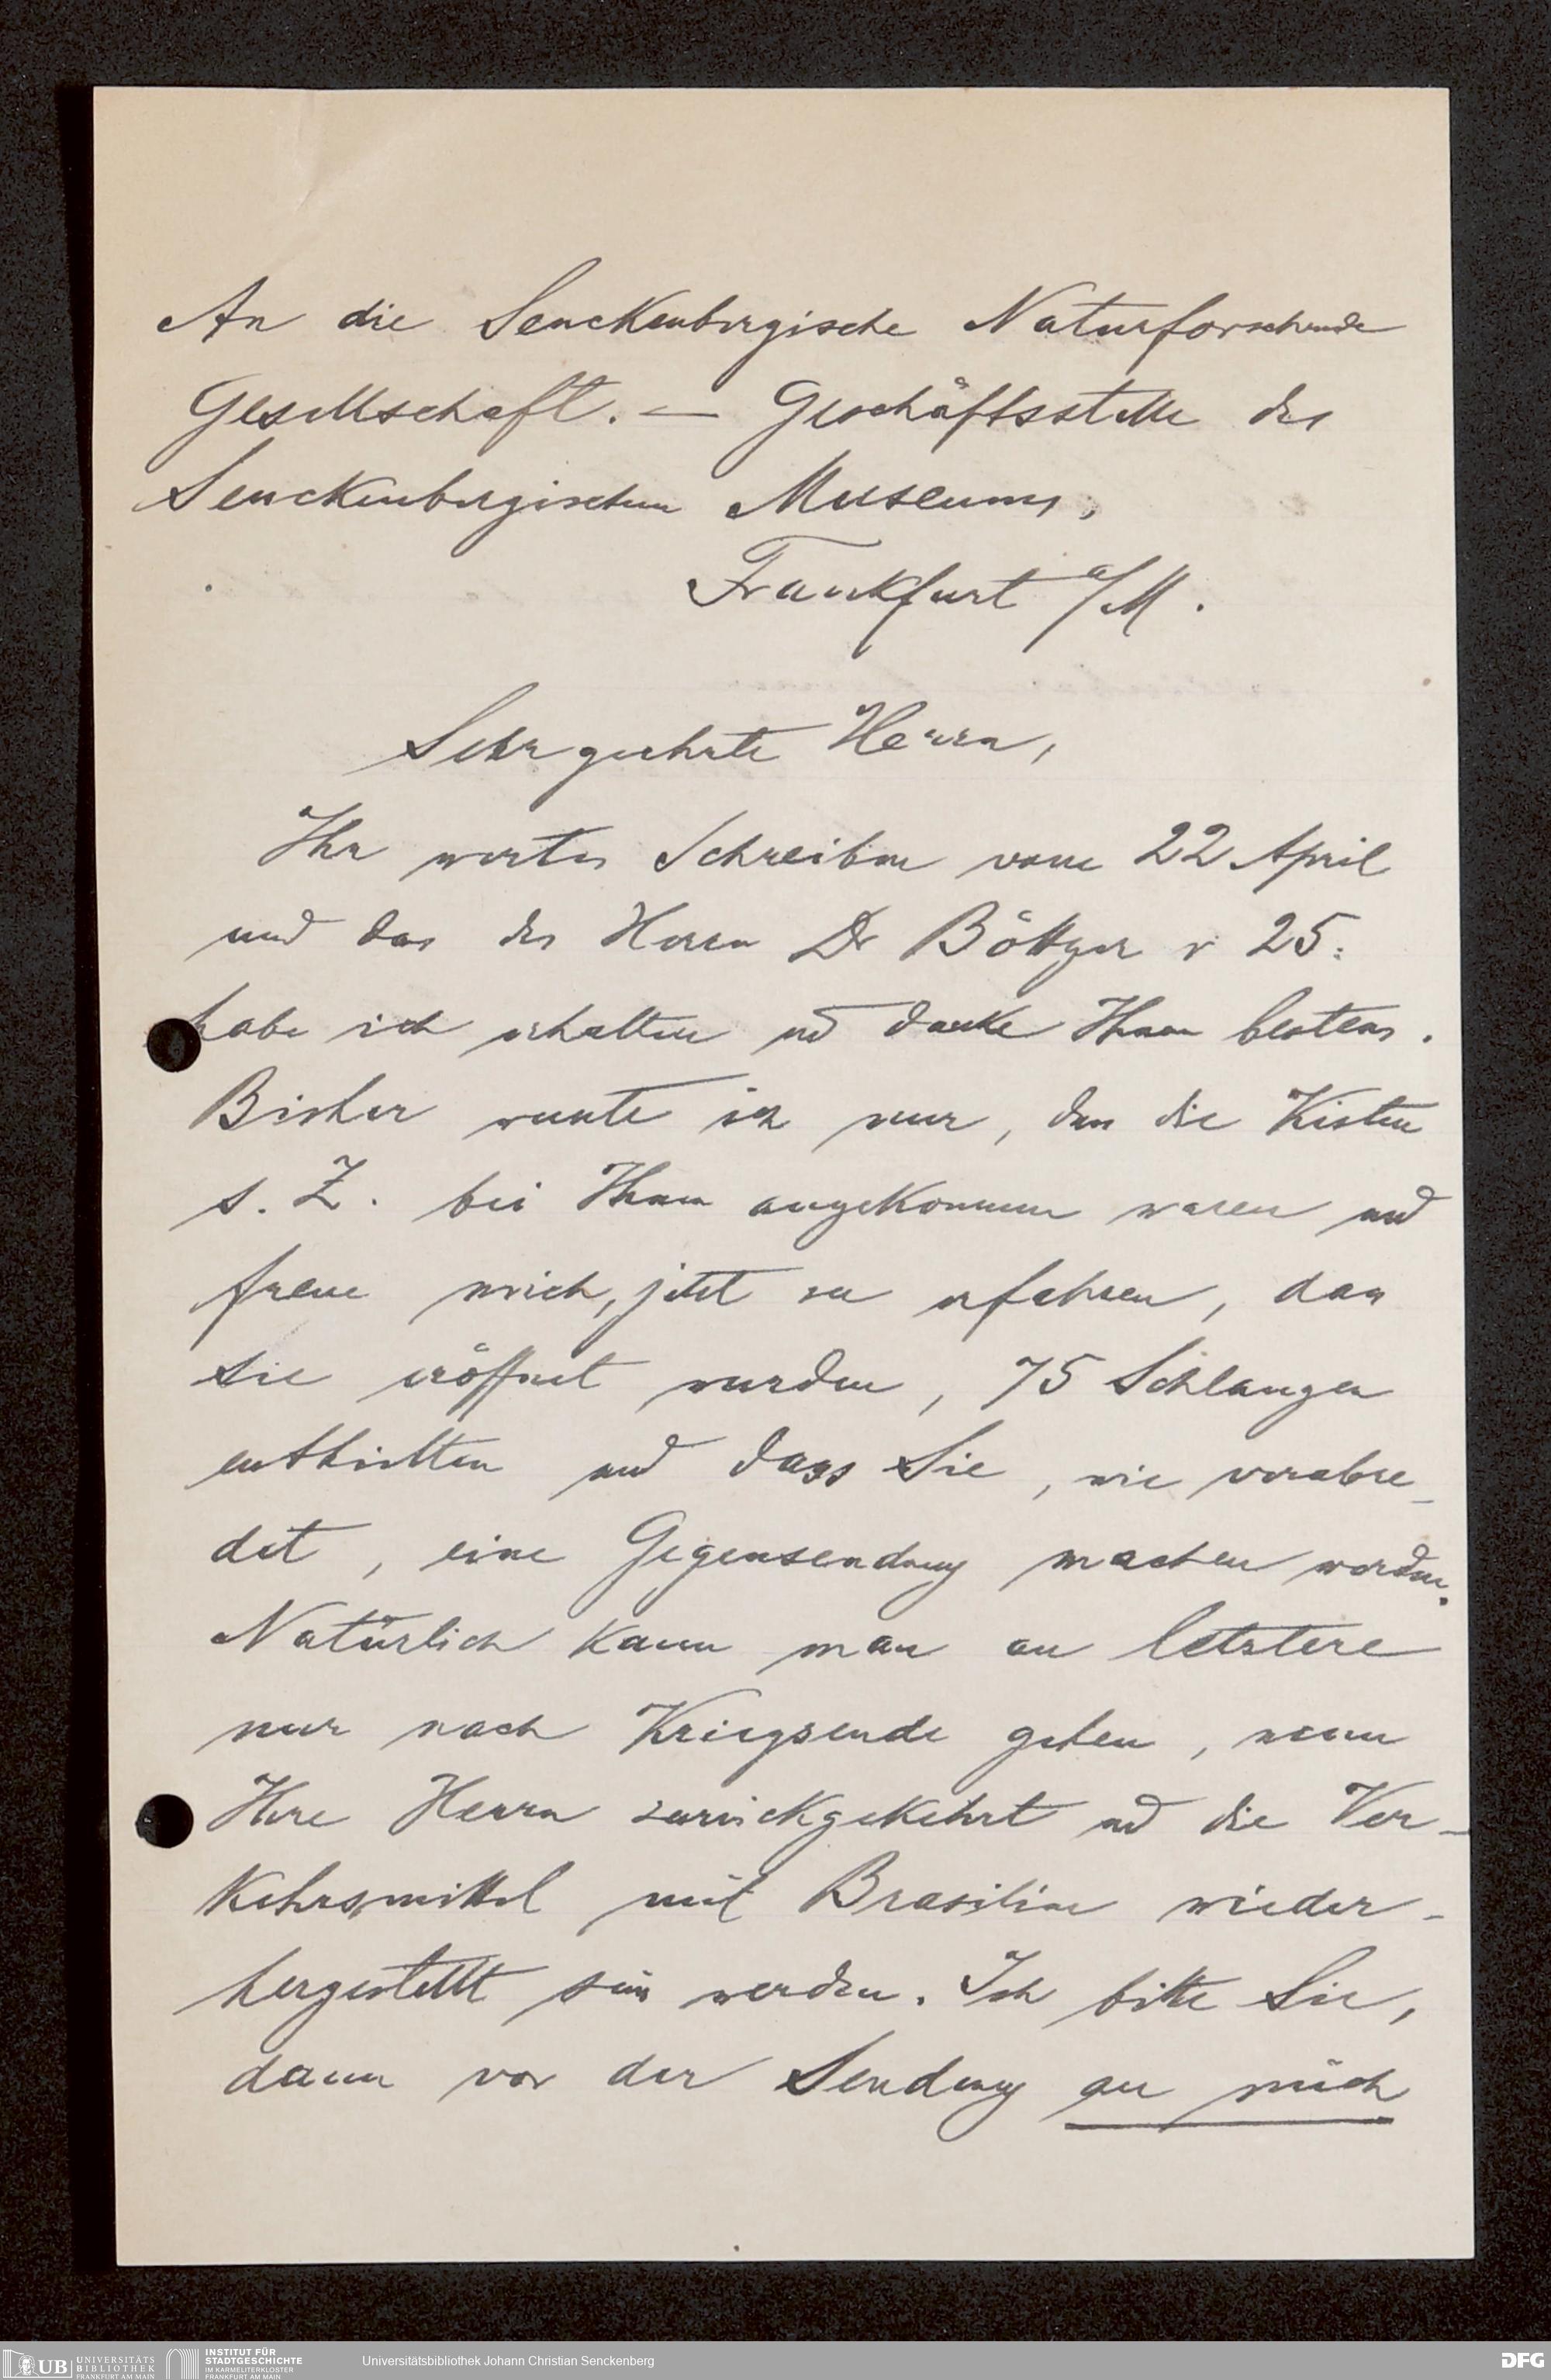 An die Senckenbergische Naturforschende
Gesellschaft. — Geschäftsstelle des
Senckenbergischen Museums,
Frankfurt a/M.
Sehr geehrte Herrn,
Ihr wertes Schreiben vom 22 April
und das des Herrn Dr Böttger v 25.
habe ich erhalten und danke Ihnen bestens.
Bisher wusste ich nur, dass die Kisten
s. Z. bei Ihnen angekommen waren und
freue mich, jetzt zu erfahren, dass
sie eröffnet wurden, 75 Schlangen
enthielten und dass Sie, wie verabre-
det, eine Gegensendung machen werden.
Natürlich kann man an letztere
nur nach Kriegsende gehen, wenn
Ihre Herrn zurückgekehrt und die Ver-
kehrsmittel mit Brasilien wieder-
hergestellt sein werden. Ich bitte Sie,
dann vor der Sendung an mich
UB UNIVERSITÄTS
BIBLIOTHEK
FRANKFURT AM MAIN
INSTITUT FÜR
STADTGESCHICHTE
IM KARMELITERKLOSTER
FRANKFURT AM MAIN
Universitätsbibliothek Johann Christian Senckenberg
DFG